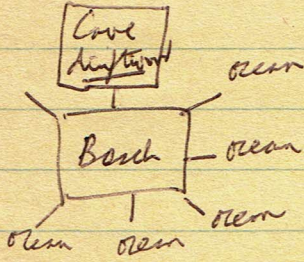 Cove
driftwood
ocean
Beach
ocean
ocean
ocean
ocean